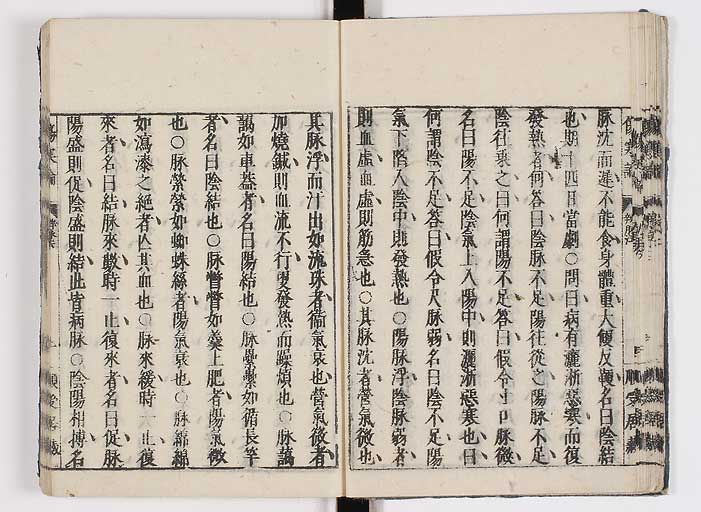 脉沈而遲不能食身體重大便反鞕名曰陰結
也期十四日當劇○問曰病有灑淅惡寒而復
發熱者何答曰陰脉不足陽往從之陽脉不足
陰往乘之曰何謂陽不足答曰假令寸口脉微
名曰陽不足陰氣上入陽中則灑淅惡寒也曰
何謂陰不足答曰假令尺脉弱名曰陰不足陽
氣下陷入陰中則發熱也○陽脉浮陰脉弱者
則血虛血虛則筋急也○其脉沈者營氣微也
其脉浮而汗出如流珠者衞氣衰也營氣微者
加燒鍼則血流不行更發熱而躁煩也○脉藹
藹如車蓋者名曰陽結也○脉纍纍如循長竿
者名曰陰結也○脉瞥瞥如羹上肥者陽氣微
也○脉縈縈如蜘蛛絲者陽氣衰也○脉綿綿
如瀉漆之絕者亾其血也○脉來緩時一止復
來者名曰結脉來數時一止復來者名曰促脉
陽盛則促陰盛則結此皆病脉○陰陽相搏名
傷寒論